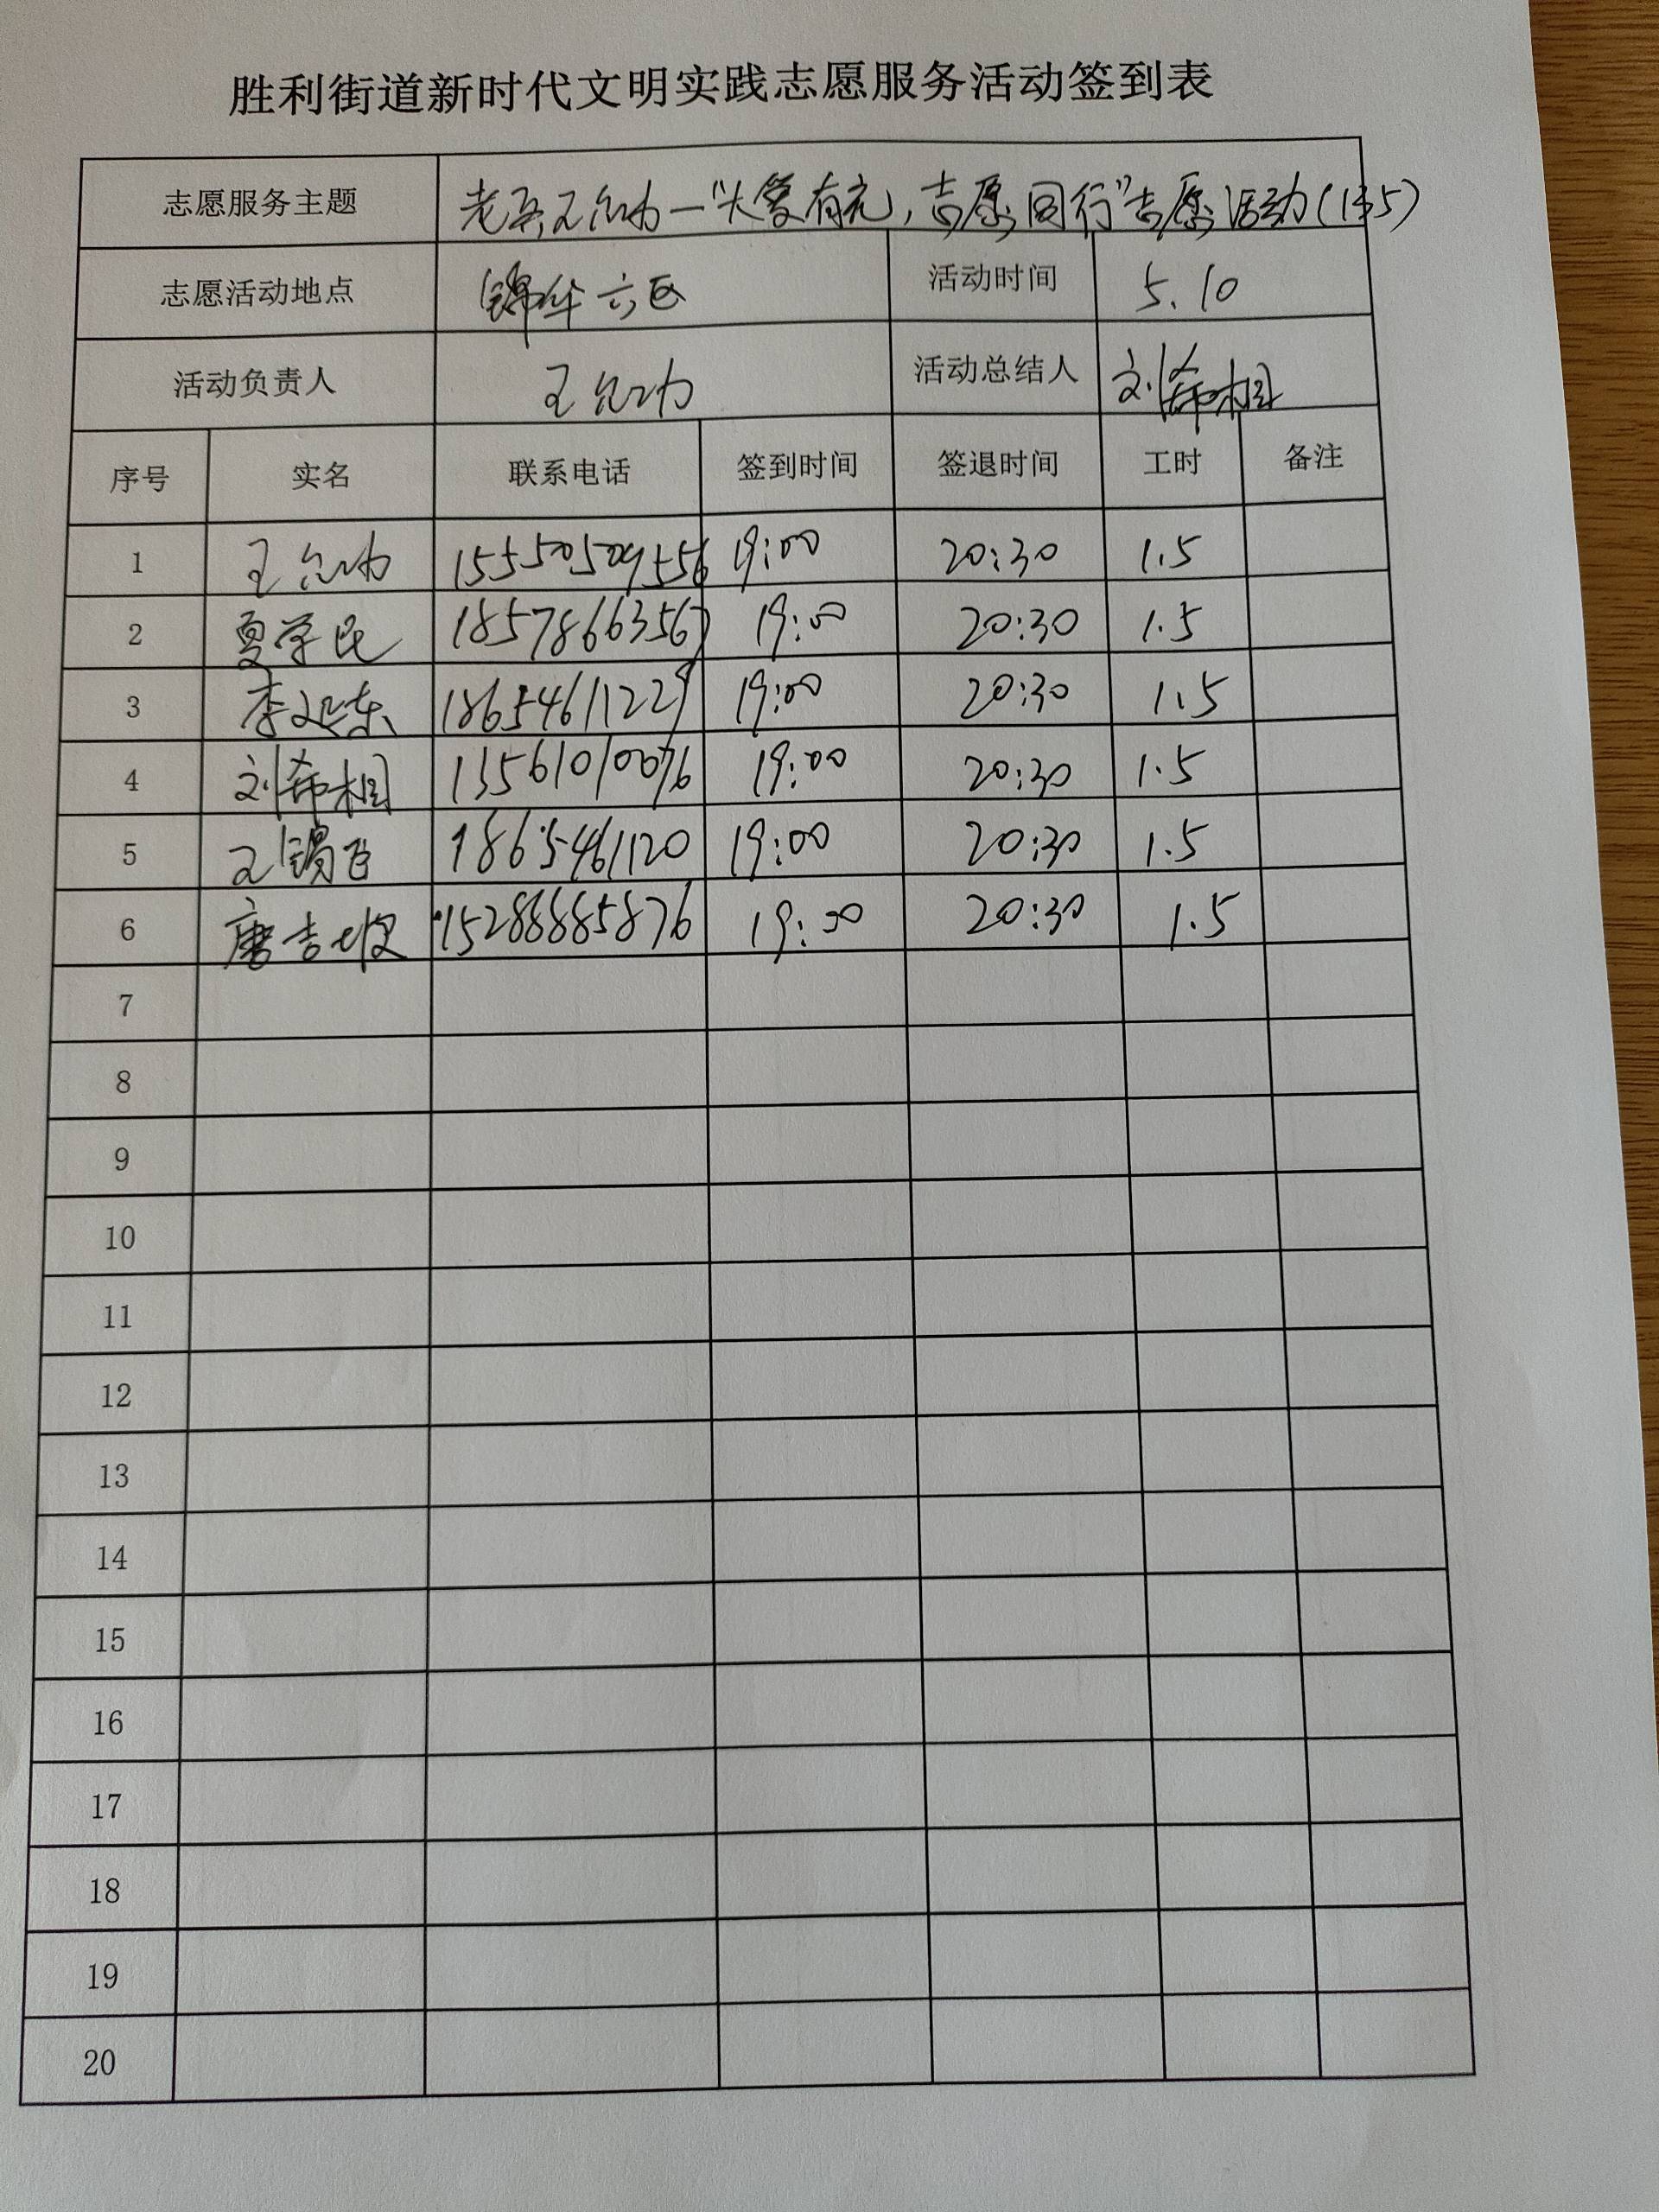 胜利街道新时代文明实践志愿服务活动签到表
志愿服务主题 老兵王允功—“大爱有充,志愿同行”志愿活动(135)
志愿活动地点 锦华六区 活动时间 5.10
活动负责人 王允功 活动总结人 刘希相
序号 实名 联系电话 签到时间 签退时间 工时 备注
1 王允功 15550509556 19:00 20:30 1.5
2 夏学民 18578663567 19:00 20:30 1.5
3 李延东 18654611229 19:00 20:30 1.5
4 刘希相 13561010076 19:00 20:30 1.5
5 王锡飞 1865461120 19:00 20:30 1.5
6 唐吉 15288885876 19:00 20:30 1.5
7
8
9
10
11
12
13
14
15
16
17
18
19
20